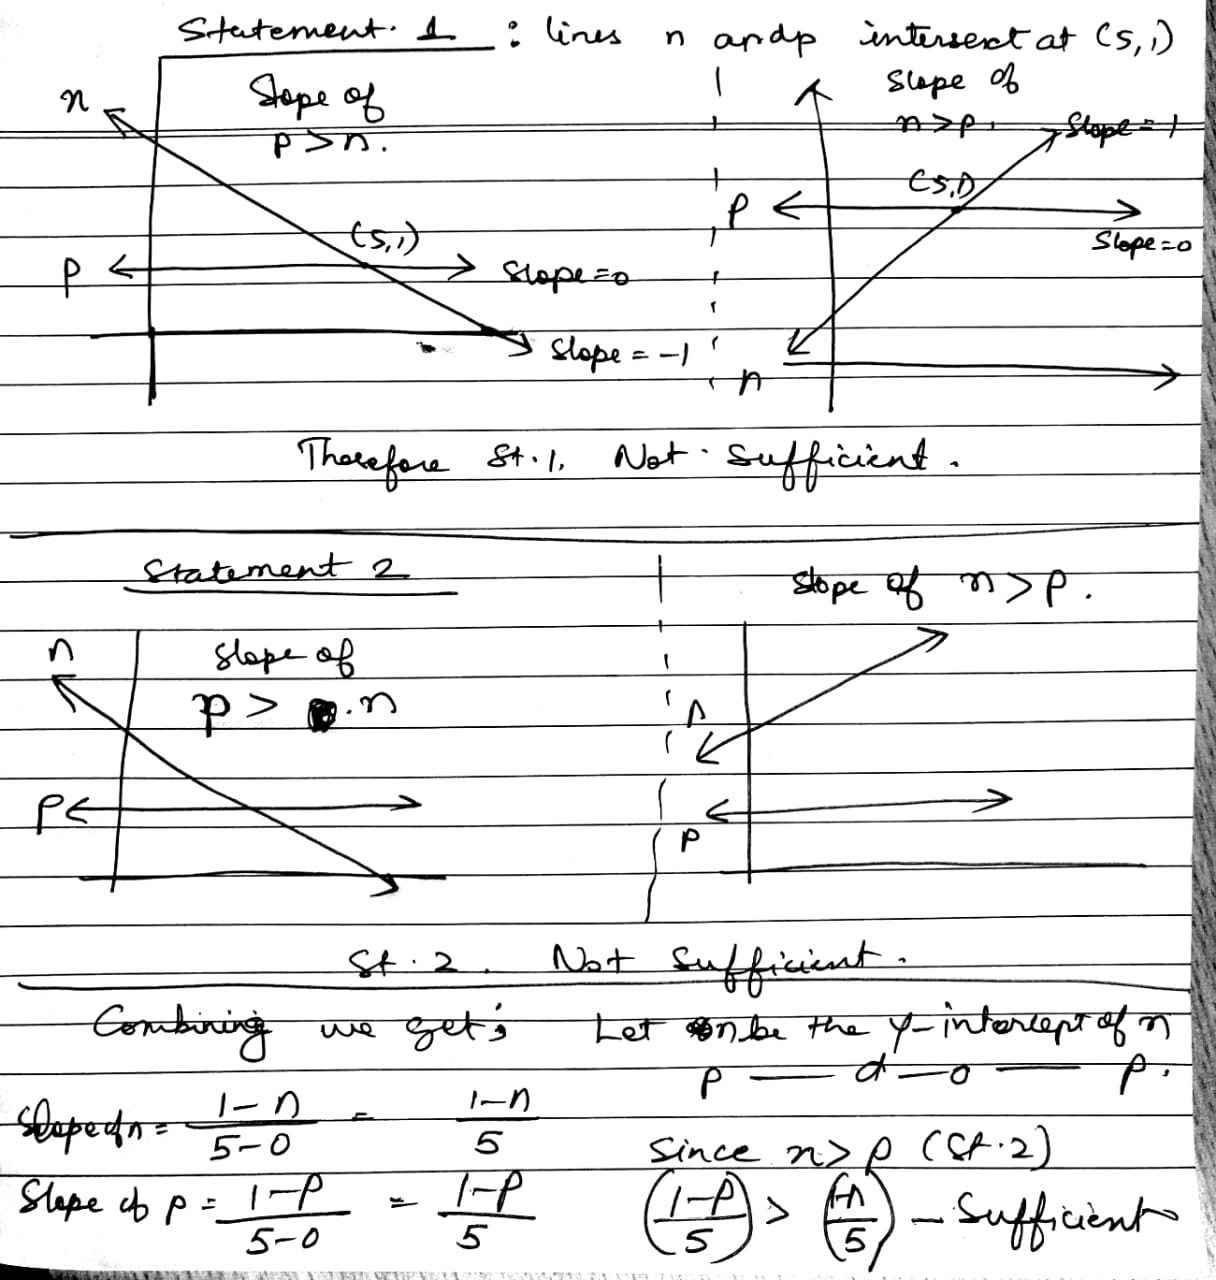 Statement. 1 : lines n and p intersect at (5,1)
n
Slope of
p > n.
(5,1)
p
Slope=0
Slope = -1
Slope of
n > p.
Slope = 1
(5,1)
p
Slope=0
n
Therefore St. 1. Not. Sufficient.
Statement 2
n
Slope of
p > . n
p
Slope of n > p.
n
p
St. 2. Not Sufficient.
Combining we get; Let n be the y-intercept of n
p — d — o — p.
Slope of n = 1-n / 5-0 = 1-n / 5
Since n > p (St. 2)
Slope of p = 1-p / 5-0 = 1-p / 5
(1-p / 5) > (1-n / 5) - Sufficient